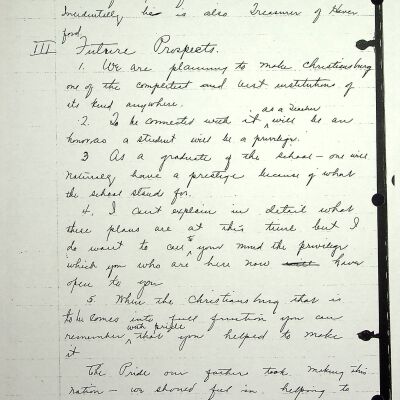 Incidentally he is also Treasurer of Haver
ford
III Future Prospects.
1. We are planning to make Christiansburg
one of the completest and best institutions of
its kind anywhere.
as a Teacher
2. To be connected with it will be an
honor as a student will be a privilege.
3 As a graduate of the school – one will
naturally have a prestige because of what
the school stands for.
4. I can't explain in detail what
these plans are at this time but I
do want to call to your mind the privilege
which you who are here now have
open to you
5. When the Christiansburg that is
to be comes into full function you can
with pride
remember that you helped to make
it
The Pride our father took making this
nation – we should feel in helping to